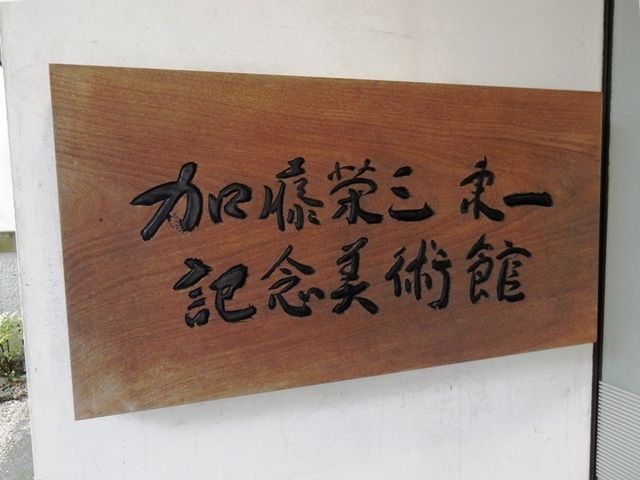 加藤栄三 東一
記念美術館